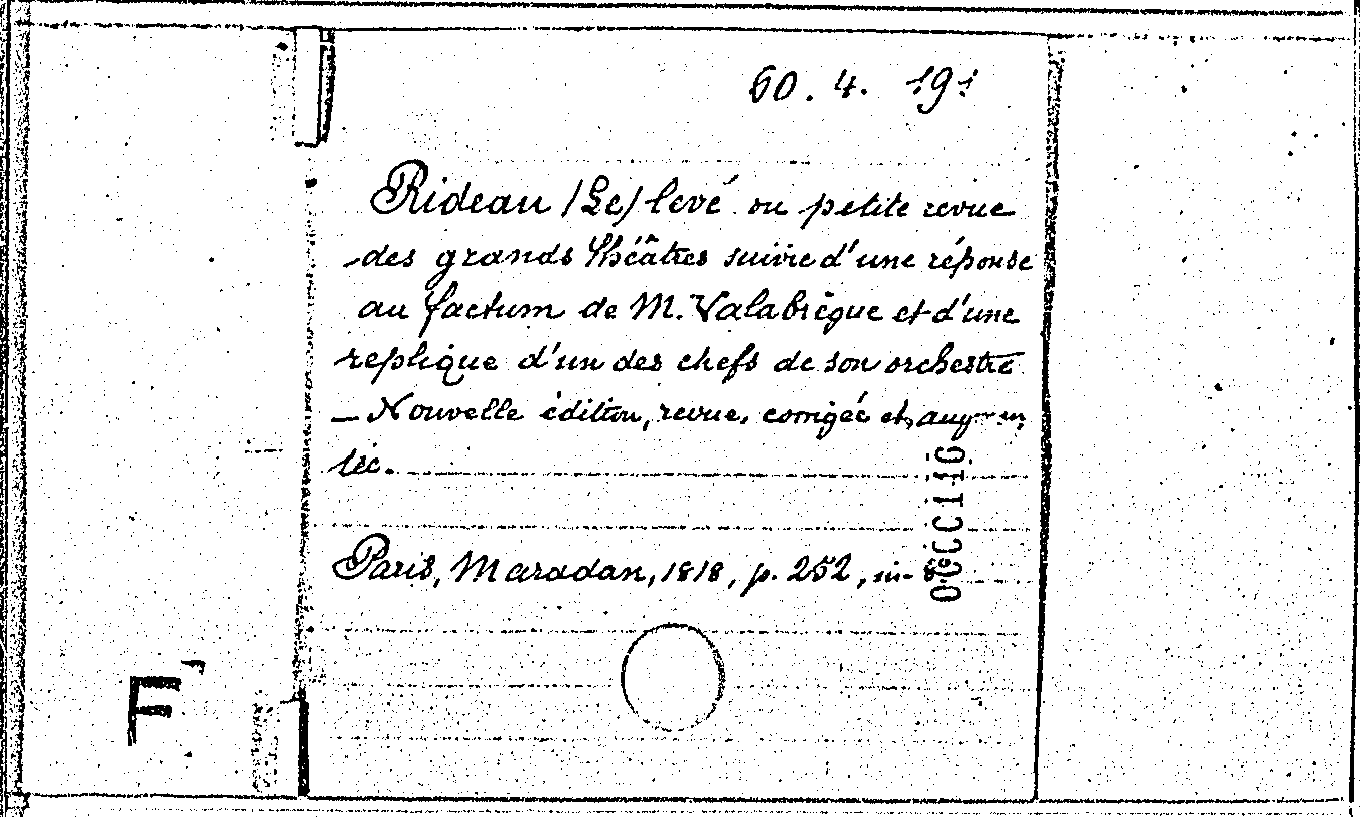 60. 4. 191
Rideau (Le) levé ou petite revue
des grands théâtres suivie d'une réponse
au factum de M. Valabrègue et d'une
replique d'un des chefs de son orchestre
— Nouvelle édition, revue, corrigée et augmen
tée.
Paris, Maradan, 1818, p. 252, in-8°
F